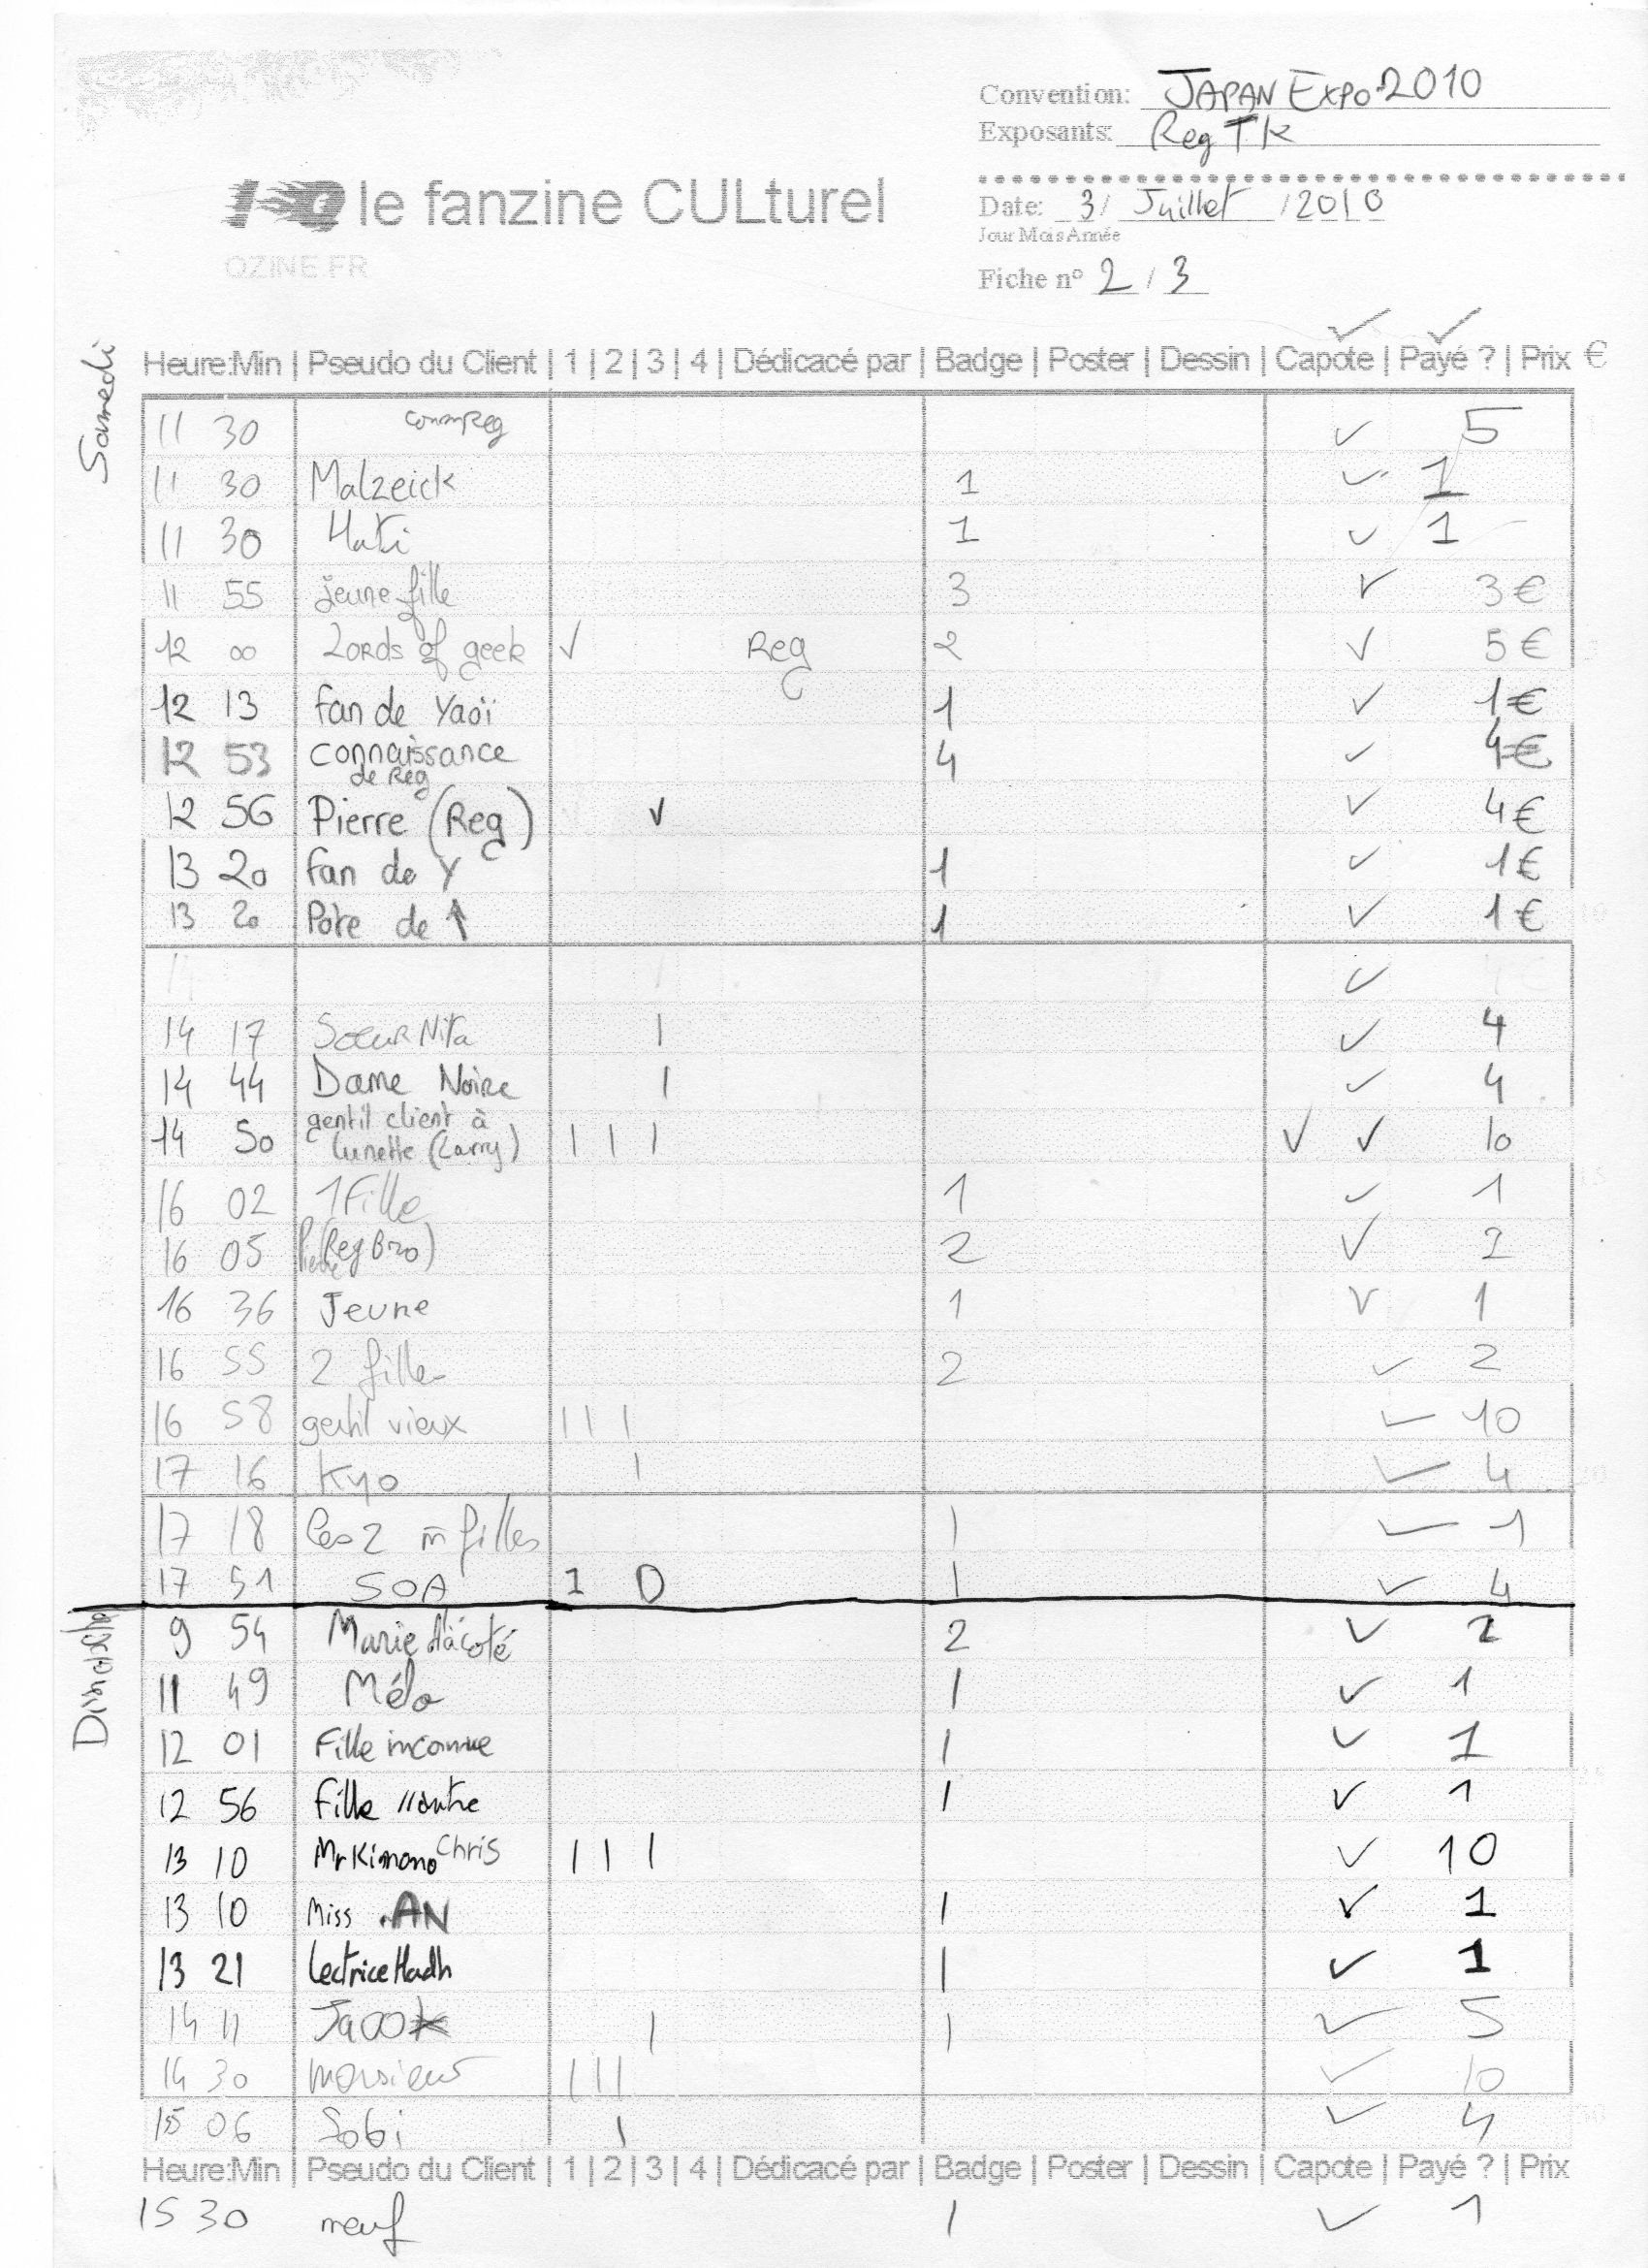 Convention: JAPAN EXPO 2010
Exposants: Reg TK
le fanzine CULturel
Date: 3 / Juillet / 2010
Jour Mois Année
QZINE.FR
Fiche n° 2 / 3
Samedi
Heure:Min | Pseudo du Client | 1 | 2 | 3 | 4 | Dédicacé par | Badge | Poster | Dessin | Capote | Payé ? | Prix €
11 30 ✓ 5
11 30 Malzeick 1 ✓ 1
11 30 Hati 1 ✓ 1
11 55 jeune fille 3 ✓ 3 €
12 00 Lords of geek ✓ Reg 2 ✓ 5 €
12 13 fan de Yaoï 1 ✓ 1 €
12 53 connaissance de Reg 4 ✓ 4 €
12 56 Pierre (Reg) ✓ ✓ 4 €
13 20 fan de Y 1 ✓ 1 €
13 20 Pote de ↑ 1 ✓ 1 €
✓
14 17 Soeur Nita 1 ✓ 4
14 44 Dame Noire 1 ✓ 4
14 50 gentil client à lunette (Larry) 1 1 1 ✓ ✓ 10
16 02 1 Fille 1 ✓ 1
16 05 Pierre (Reg Bro) 2 ✓ 2
16 36 Jeune 1 ✓ 1
16 55 2 filles 2 ✓ 2
16 58 gentil vieux 1 1 1 ✓ 10
17 16 Kyo 1 ✓ 4
17 18 les 2 m̄ filles 1 ✓ 1
17 51 SOA 1 D 1 ✓ 4
Dimanche
9 54 Marie d'à côté 2 ✓ 2
11 49 Mélo 1 ✓ 1
12 01 Fille inconnue 1 ✓ 1
12 56 fille 1 ✓ 1
13 10 Mr Kimono Chris 1 1 1 ✓ 10
13 10 Miss AN 1 ✓ 1
13 21 lectrice Hadh 1 ✓ 1
14 11 1 1 ✓ 5
14 30 monsieur 1 1 1 ✓ 10
15 06 Sobi 1 ✓ 4
Heure:Min | Pseudo du Client | 1 | 2 | 3 | 4 | Dédicacé par | Badge | Poster | Dessin | Capote | Payé ? | Prix
15 30 meuf 1 ✓ 1